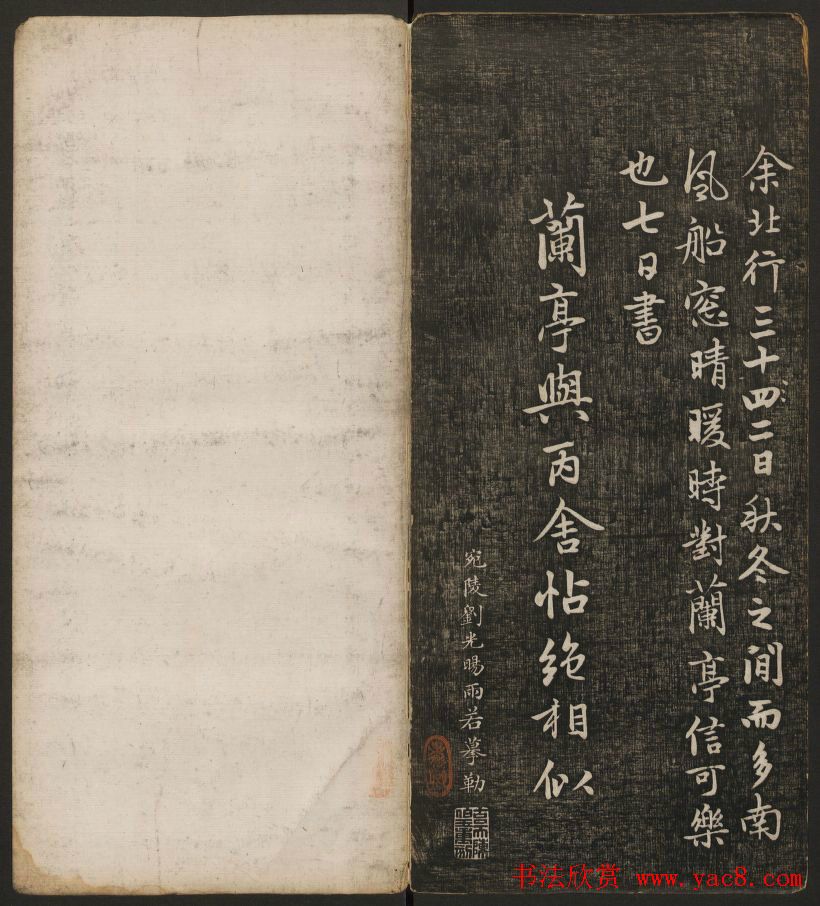 余北行三十四二日秋冬之間而多南
风船窓晴暖時對蘭亭信可樂
也七日書
蘭亭與丙舍帖绝相似
宛陵劉光暘雨若摹勒
书法欣赏 www.yac8.com